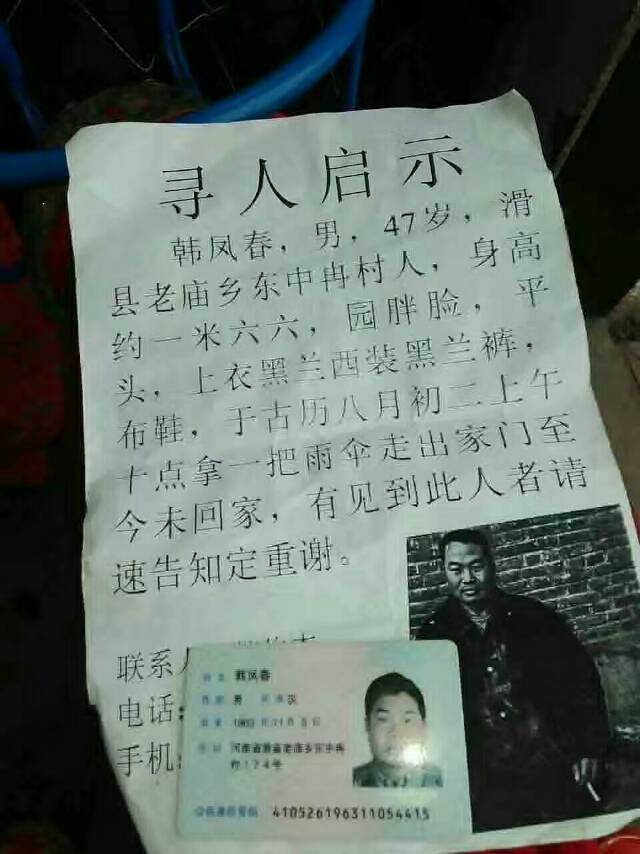 寻人启示
韩凤春，男，47岁，滑
县老庙乡东中冉村人，身高
约一米六六，园胖脸，平
头，上衣黑兰西装黑兰裤，
布鞋，于古历八月初二上午
十点拿一把雨伞走出家门至
今未回家，有见到此人者请
速告知定重谢。
联系人
电话:
手机:
姓名 韩凤春
性别 男 民族 汉
出生 1963年11月5日
住址 河南省滑县老庙乡东中冉
村174号
公民身份号码 410526196311054415